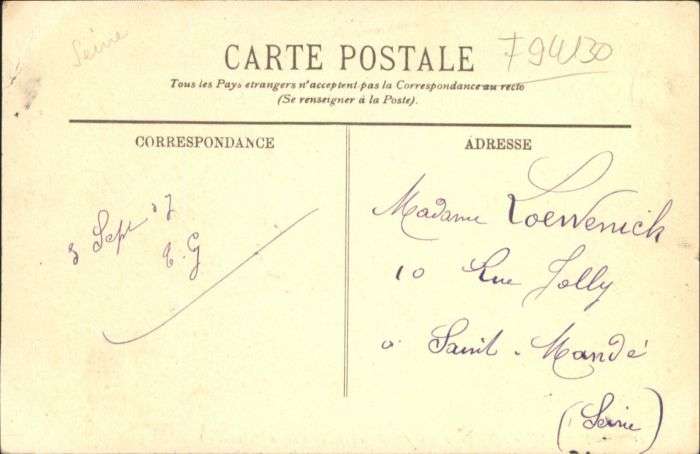 Seine
F94130
CARTE POSTALE
Tous les Pays etrangers n'acceptent pas la Correspondance au recto
(Se renseigner à la Poste).
CORRESPONDANCE
ADRESSE
3 Sept 07
E. G
Madame Loewenick
10 Rue Jolly
à Saint-Mandé
(Seine)